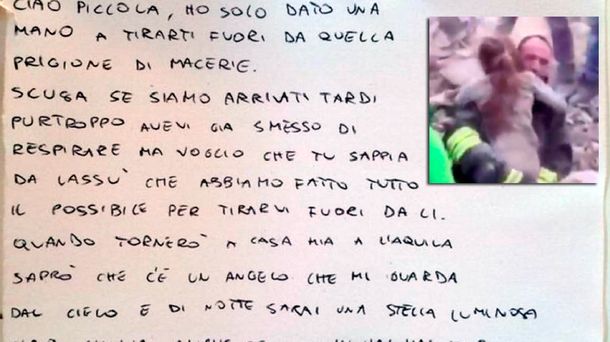 CIAO PICCOLA, HO SOLO DATO UNA
MANO A TIRARTI FUORI DA QUELLA
PRIGIONE DI MACERIE.
SCUSA SE SIAMO ARRIVATI TARDI
PURTROPPO AVEVI GIA SMESSO DI
RESPIRARE MA VOGLIO CHE TU SAPPIA
DA LASSU' CHE ABBIAMO FATTO TUTTO
IL POSSIBILE PER TIRARVI FUORI DA LI.
QUANDO TORNERÒ A CASA MIA A L'AQUILA
SAPRÒ CHE C'È UN ANGELO CHE MI GUARDA
DAL CIELO E DI NOTTE SARAI UNA STELLA LUMINOSA